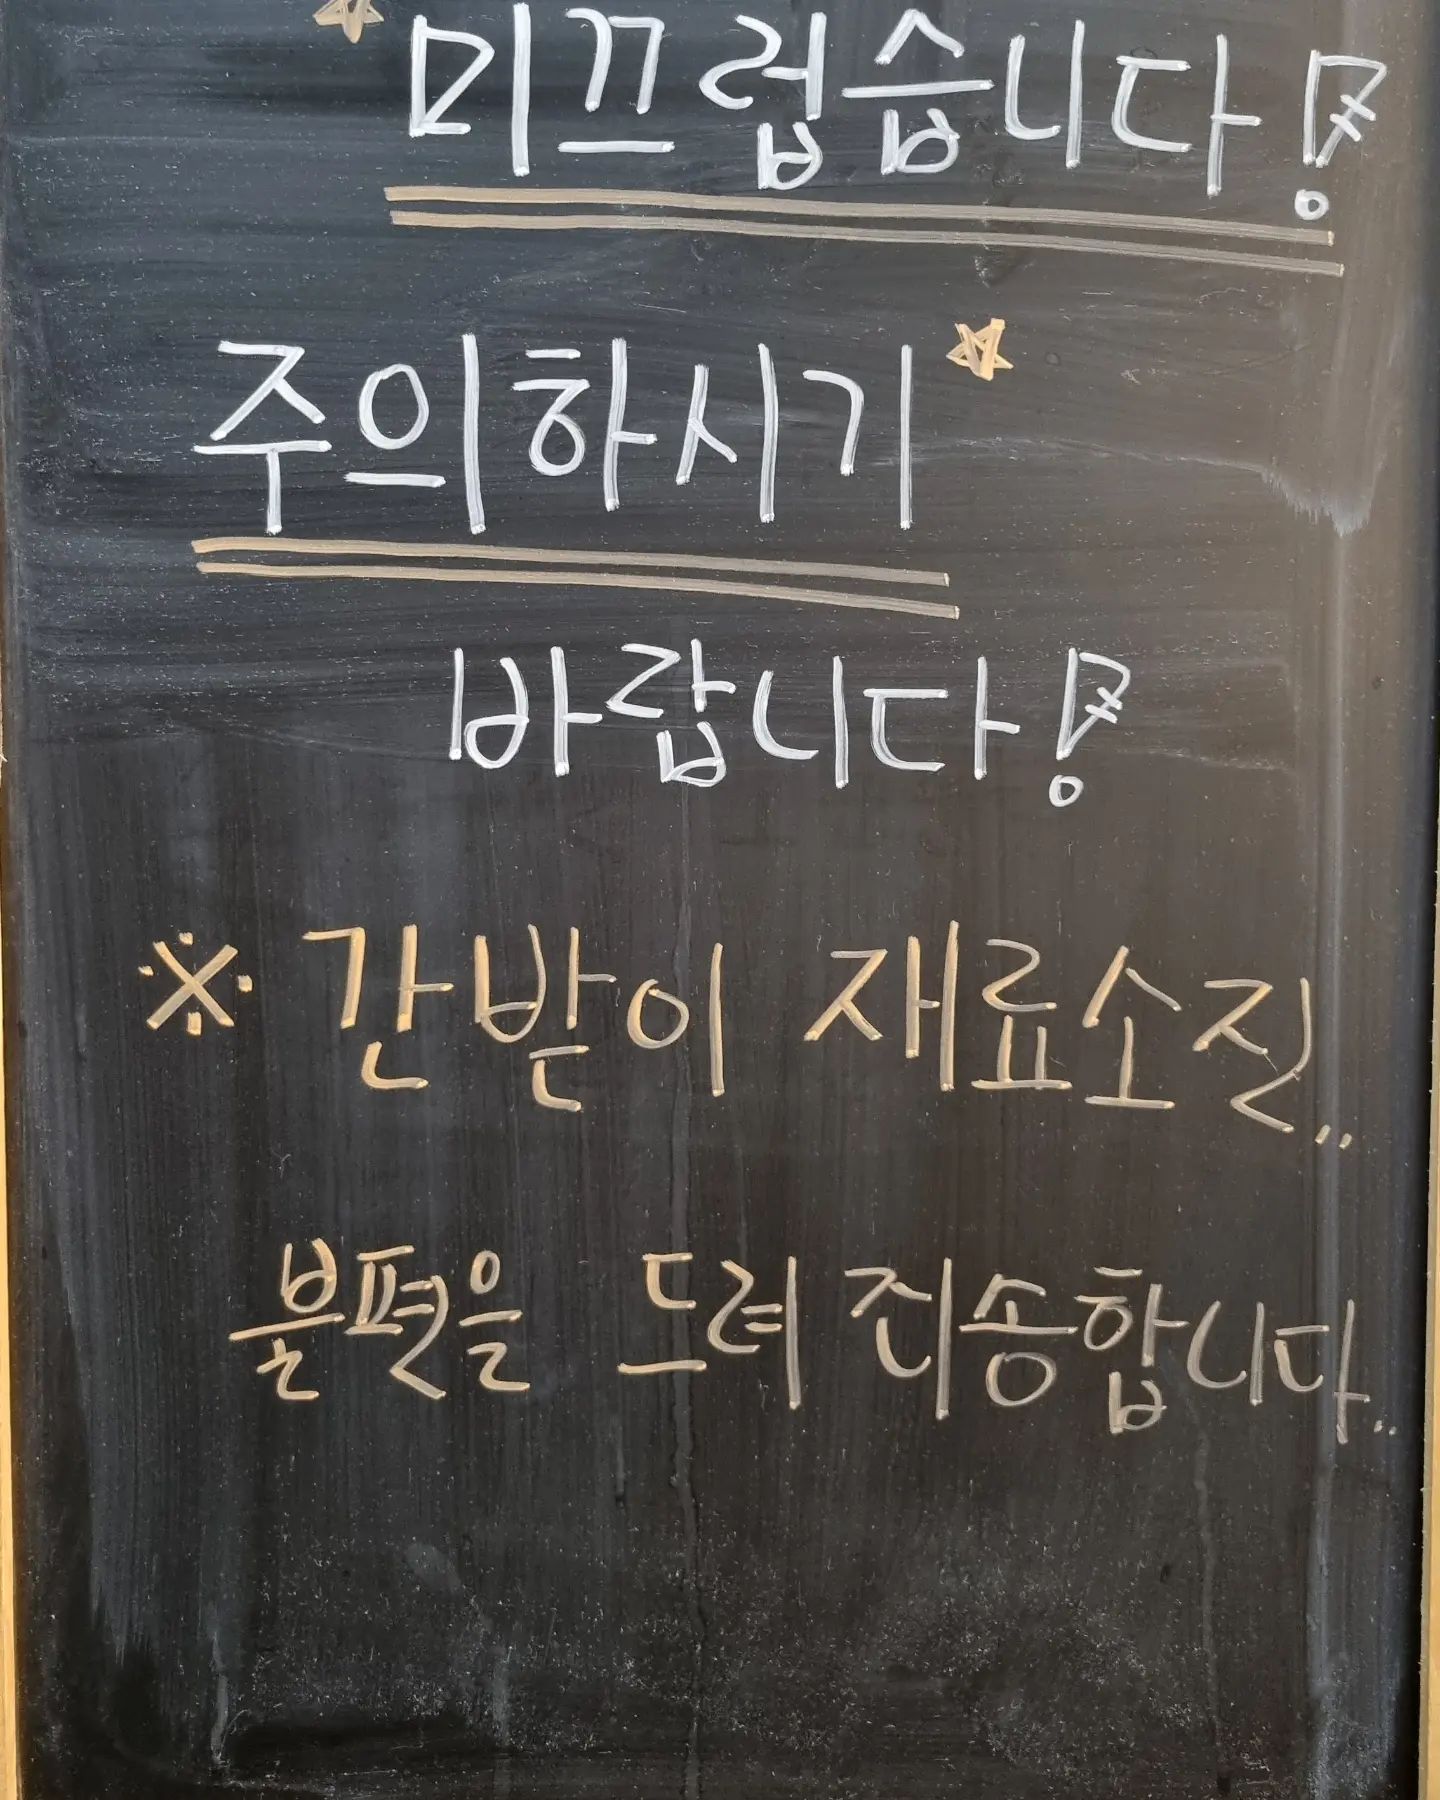 미끄럽습니다!
주의하시기
바랍니다!
※ 간받이 재료소질..
불편을 드려 죄송합니다..